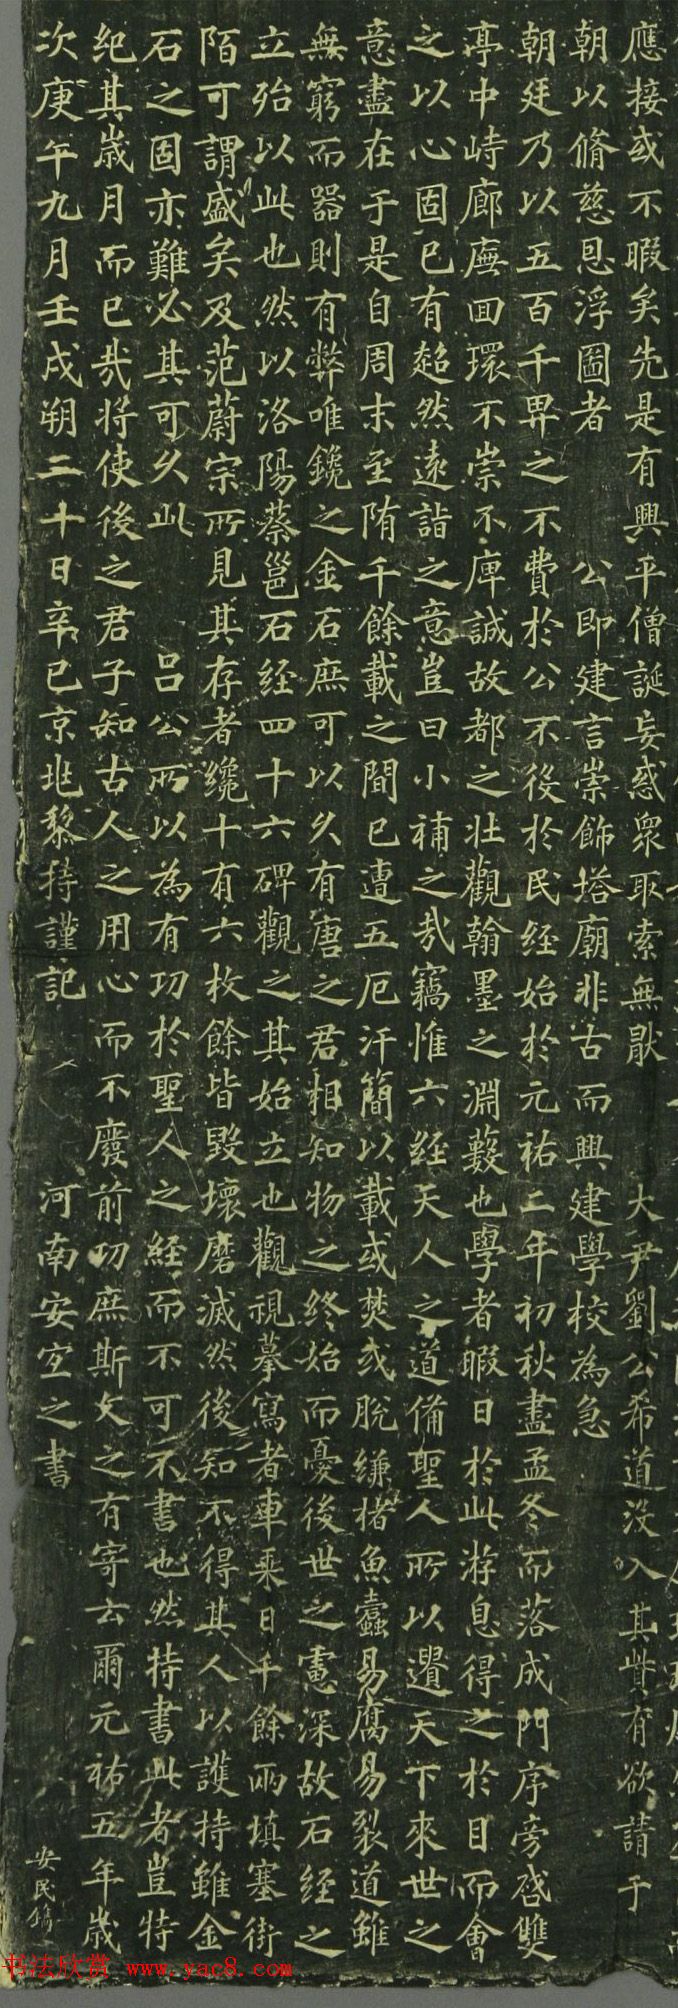 應接或不暇矣先是有興平僧誕妄惑衆取索無猒 大尹劉公希道没入其貲有欲請于
朝以脩慈恩浮圖者 公即建言崇飾塔廟非古而興建學校為急
朝廷乃以五百千畀之不費於公不役於民経始於元祐二年初秋盡孟冬而落成門序旁啓雙
亭中峙廊廡回環不崇不庳誠故都之壮觀翰墨之淵藪也學者暇日於此游息得之於目而會
之以心固已有超然遠詣之意豈曰小補之㢤竊惟六経天人之道備聖人所以遺天下來世之
意盡在于是自周末至隋千餘載之間已遭五厄汗簡以載或焚或脱縑楮魚蠹易腐易裂道雖
無窮而器則有弊唯鑱之金石庶可以久有唐之君相知物之終始而憂後世之慮深故石経之
立殆以此也然以洛陽蔡邕石経四十六碑觀之其始立也觀視摹寫者車乘日千餘兩填塞街
陌可謂盛矣及范蔚宗所見其存者纔十有六枚餘皆毀壞磨滅然後知不得其人以護持雖金
石之固亦難必其可久此 吕公所以為有功於聖人之経而不可不書也然持書此者豈特
紀其歳月而已㢤将使後之君子知古人之用心而不廢前功庶斯文之有寄云爾元祐五年歳
次庚午九月壬戌朔二十日辛巳京兆黎持謹記 河南安宜之書
安民鐫
书法欣赏 www.yac8.com